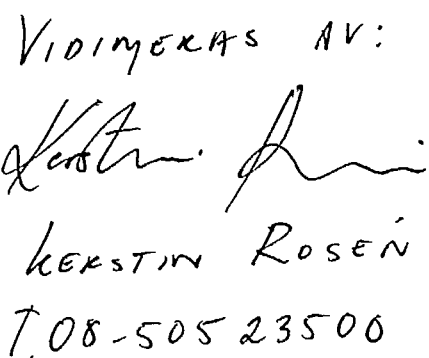 VIDIMERAS AV:
Kerstin
KERSTIN ROSÉN
T. 08-505 23500